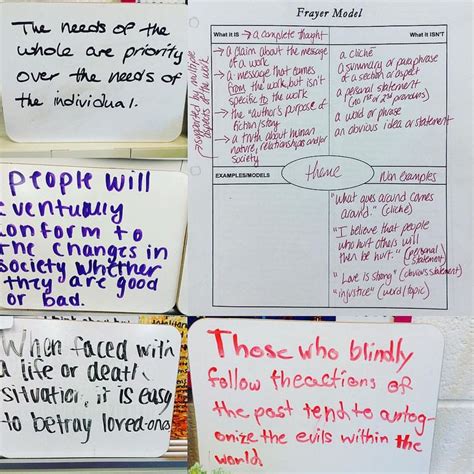 The needs of the
whole are priority
over the needs of
the individual.
Frayer Model
What it IS → a complete thought
→ a claim about the message
of a work
→ a message that comes
from the work, but isn't
specific to the work
→ the "author's purpose of
fiction/story
→ a truth about human
nature, relationships and/or
society
→ supported by multiple
aspects of the work
What it ISN'T
a cliché
a summary or paraphrase
of a section or aspect
a personal statement
(no 1st or 2nd pronouns)
a word or phrase
an obvious idea or statement
theme
EXAMPLES/MODELS
Non examples
"What goes around comes
around." (cliche)
"I believe that people
who hurt others will
then be hurt." (personal
statement)
"Love is strong" (obvious statement)
"injustice" (word/topic)
people will
eventually
conform to
the changes in
society whether
they are good
or bad.
When faced with
a life or death
situation, it is easy
to betray loved ones
Those who blindly
follow the actions of
the past tend to antag-
onize the evils within the
world.